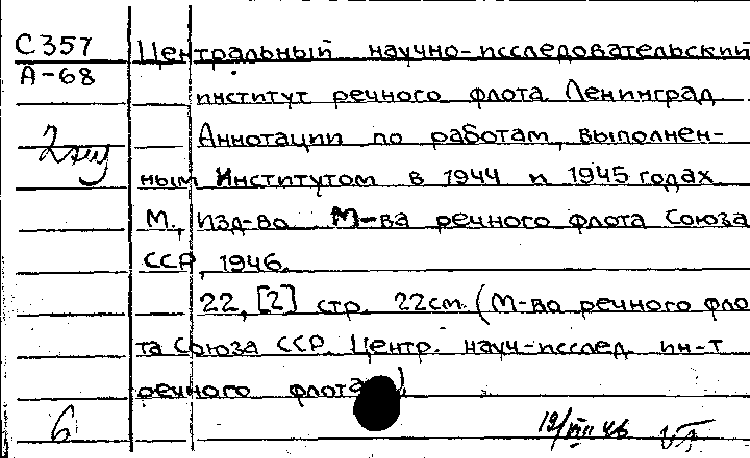 С 357
А-68
2 экз
Центральный научно-исследовательский
институт речного флота. Ленинград
Аннотации по работам, выполнен-
ным Институтом в 1944 и 1945 годах
М., Изд-во М-ва речного флота Союза
ССР, 1946.
22, [2] стр. 22см. (М-во речного фло
та Союза ССР. Центр. науч-исслед. ин-т
речного флота)
6
19/VIII 46